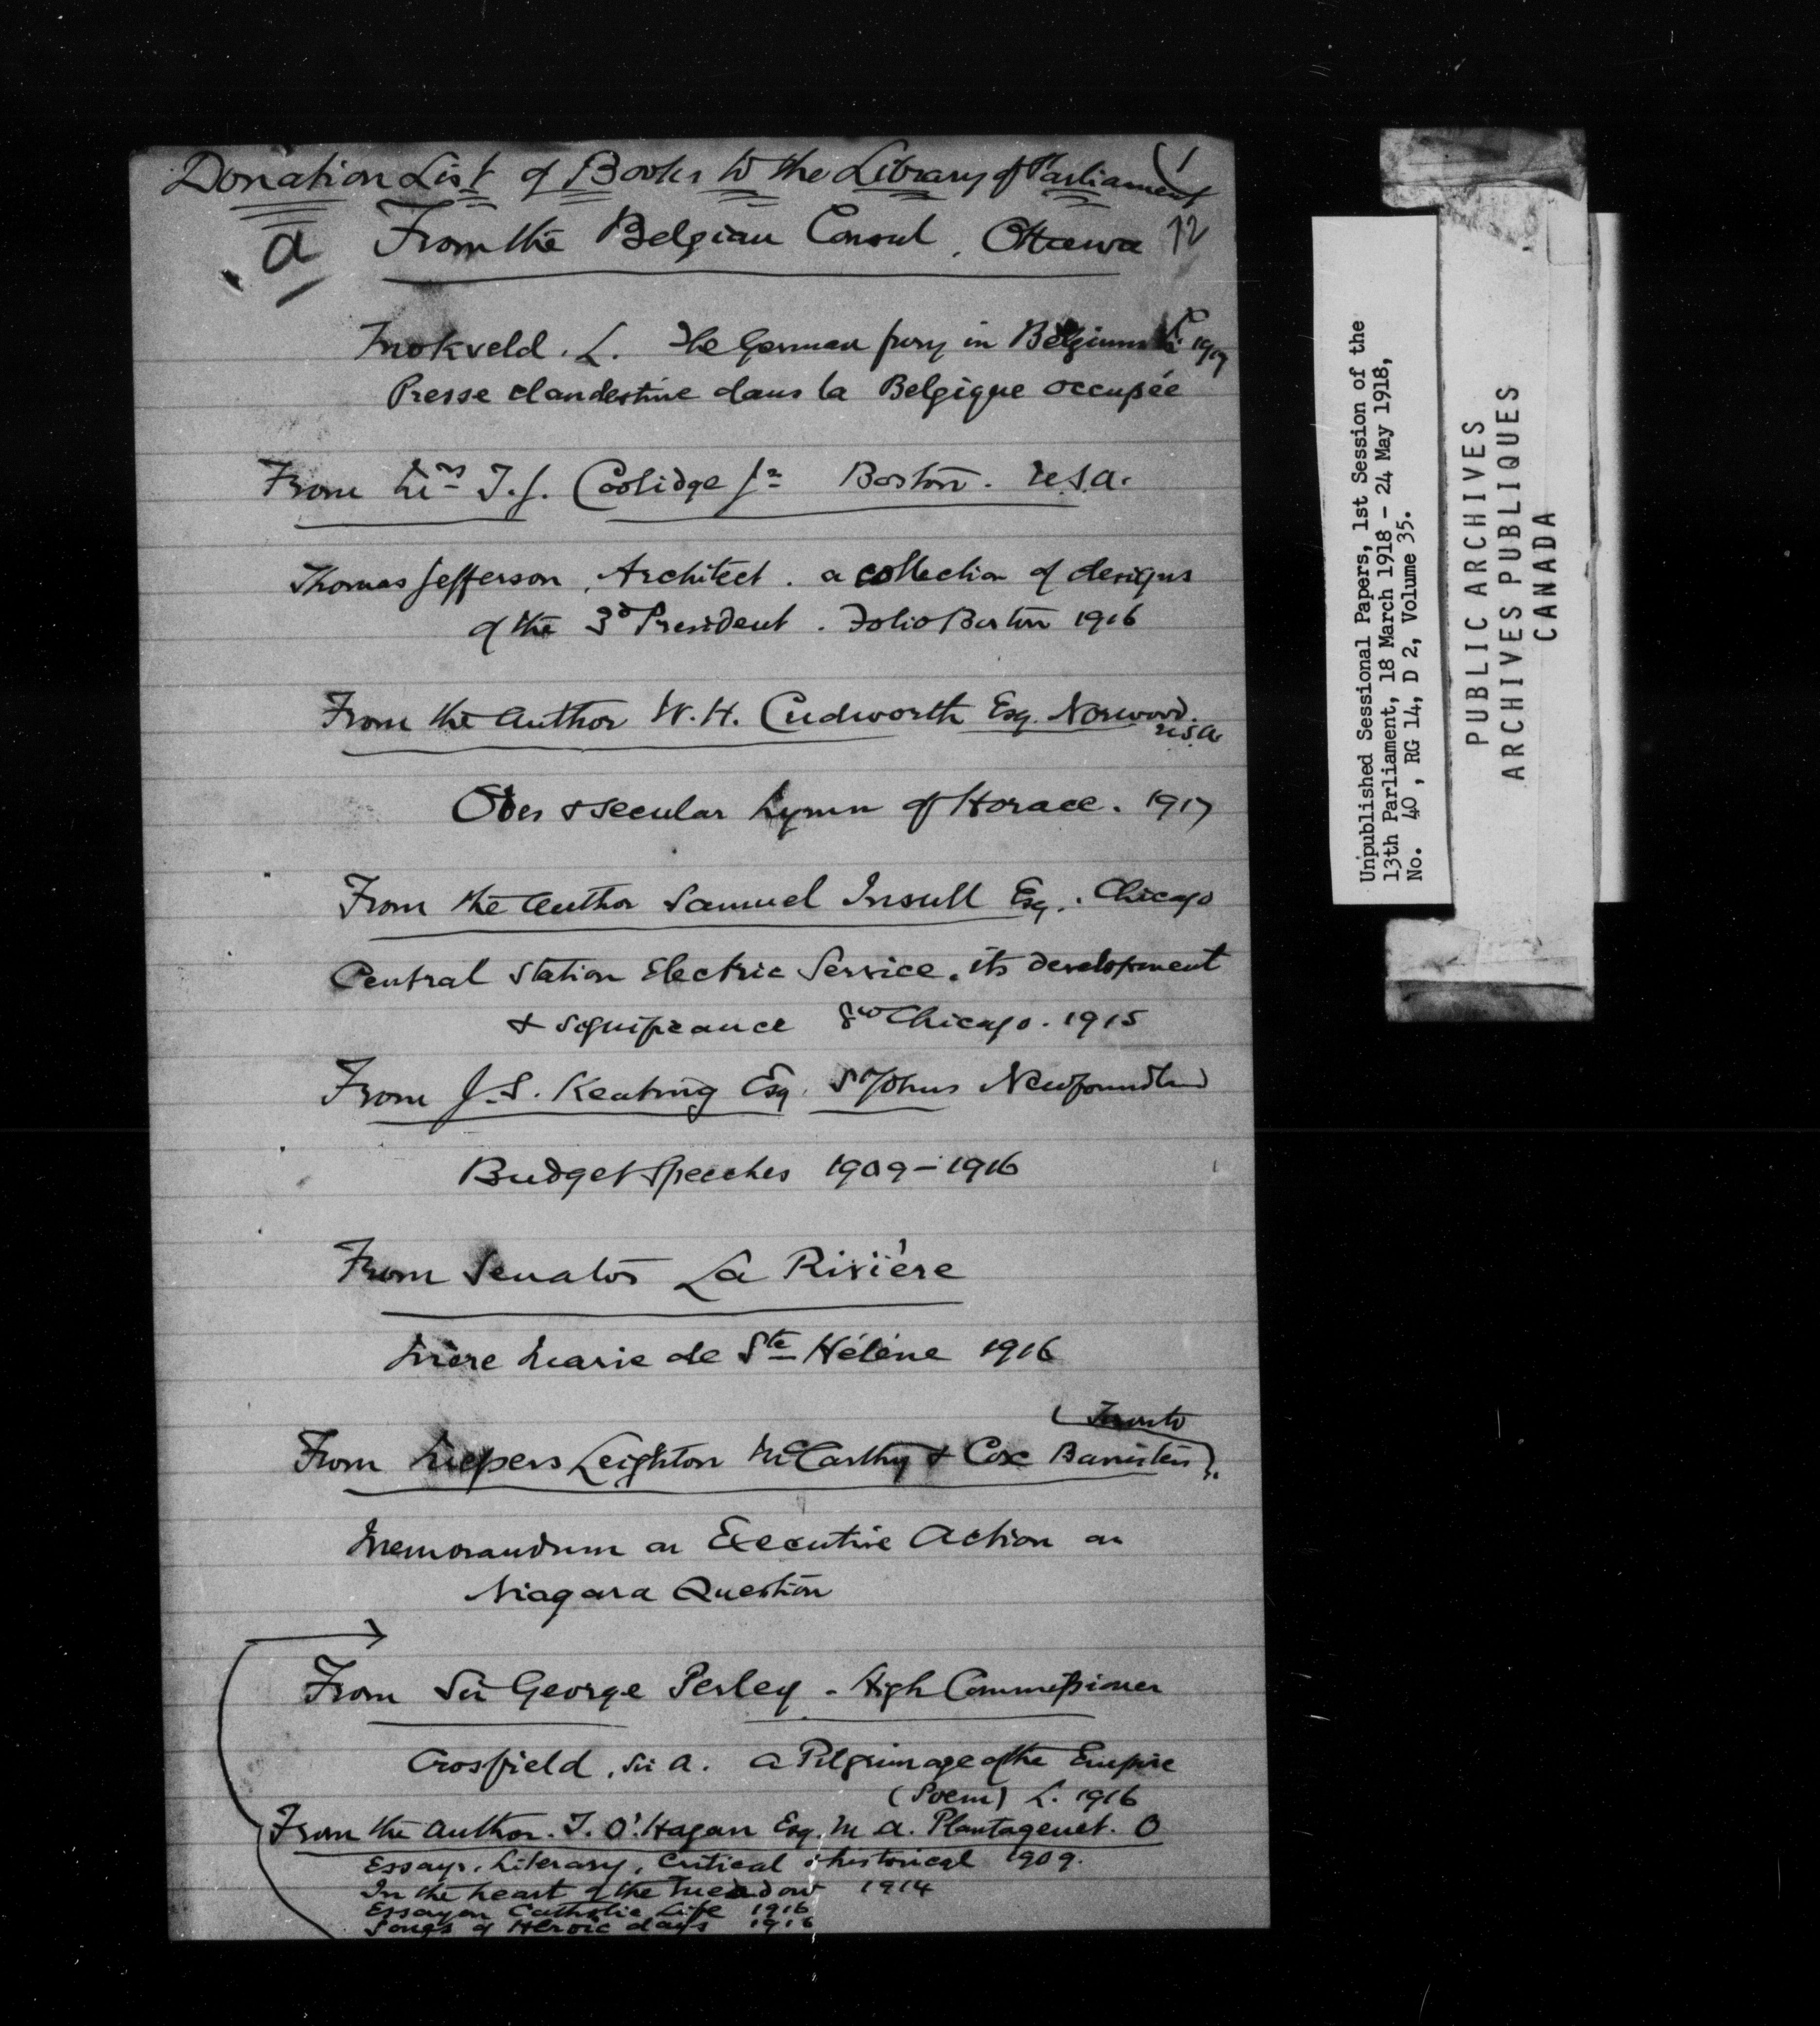 Donation List of Books to the Library of Parliament
a From the Belgian Consul, Ottawa 12
Mokveld. L. The German fury in Belgium L. 1917
Presse clandestine dans la Belgique occupée
From Mrs T. J. Coolidge Jr Boston. U.S.A.
Thomas Jefferson, Architect. a collection of designs
of the 3d President. Folio Boston 1916
From the author W. H. Cudworth Esq. Norwood.
U.S.A
Odes & secular hymn of Horace. 1917
From the author Samuel Insull Esq. Chicago
Central Station Electric Service. its development
& significance 8vo Chicago. 1915
From J. S. Keating Esq. St Johns Newfoundland
Budget Speeches 1909-1916
From Senator La Rivière
Mère Marie de Ste Hélène 1916
(Toronto
From Messrs Leighton McCarthy & Cox Barristers).
Memorandum on Executive Action on
Niagara Question
From Sir George Perley - High Commissioner
Crosfield, Sir A. A Pilgrimage of the Empire
(Poem) L. 1916
From the author. T. O'Hagan Esq. M. A. Plantagenet. O
Essays. Literary, Critical & historical 1909.
In the heart of the meadow 1914
Essay on Catholic Life 1916
Songs of Heroic days 1916
Unpublished Sessional Papers, 1st Session of the
13th Parliament, 18 March 1918 - 24 May 1918,
No. 40, RG 14, D 2, Volume 35.
PUBLIC ARCHIVES
ARCHIVES PUBLIQUES
CANADA